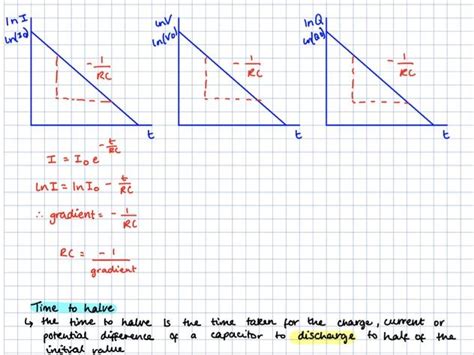 ln I
ln(I₀)
- 1/RC
t
lnV
ln(V₀)
- 1/RC
t
lnQ
ln(Q₀)
- 1/RC
t
I = I₀ e^(-t/RC)
lnI = lnI₀ - t/RC
∴ gradient = - 1/RC
RC = -1/gradient
Time to halve
↳ the time to halve is the time taken for the charge, current or
potential difference of a capacitor to discharge to half of the
initial value